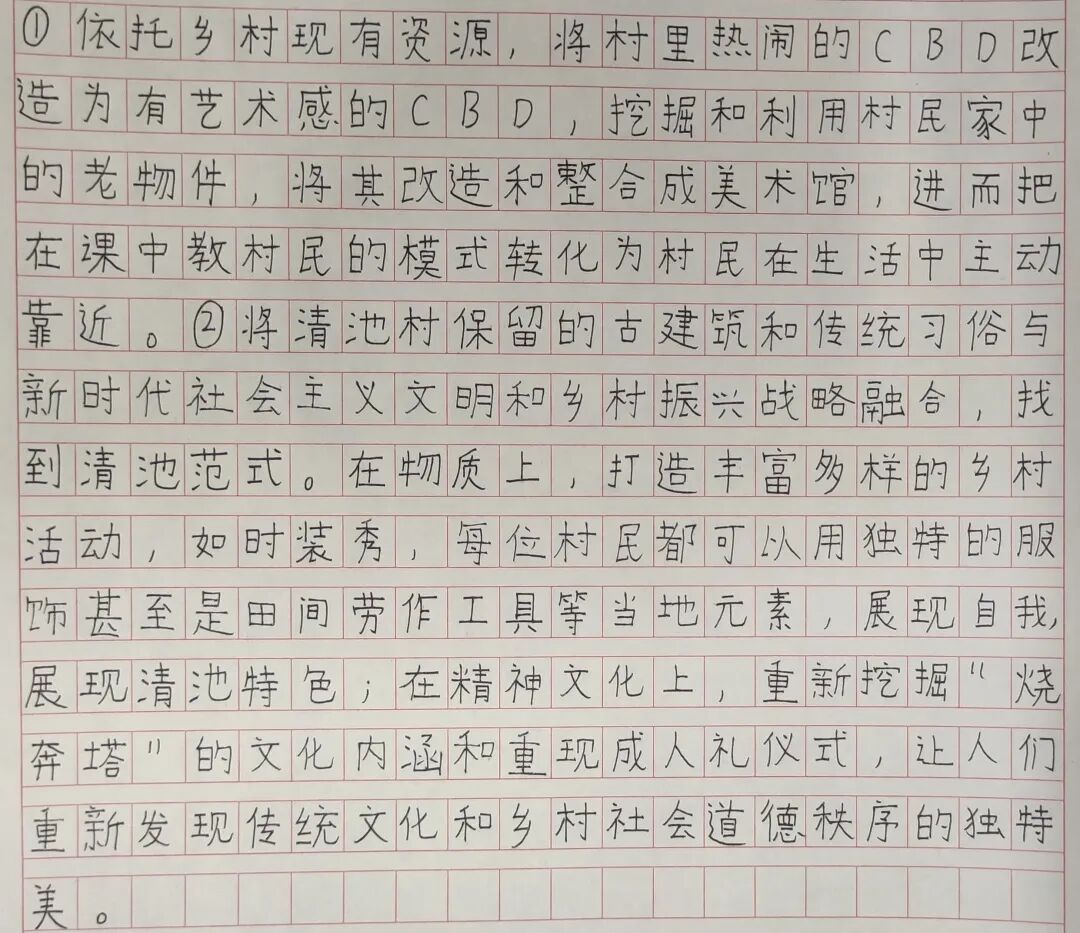 ①依托乡村现有资源，将村里热闹的CBD改
造为有艺术感的CBD，挖掘和利用村民家中
的老物件，将其改造和整合成美术馆，进而把
在课中教村民的模式转化为村民在生活中主动
靠近。②将清池村保留的古建筑和传统习俗与
新时代社会主义文明和乡村振兴战略融合，找
到清池范式。在物质上，打造丰富多样的乡村
活动，如时装秀，每位村民都可以用独特的服
饰甚至是田间劳作工具等当地元素，展现自我，
展现清池特色；在精神文化上，重新挖掘“烧
奔塔”的文化内涵和重现成人礼仪式，让人们
重新发现传统文化和乡村社会道德秩序的独特
美。